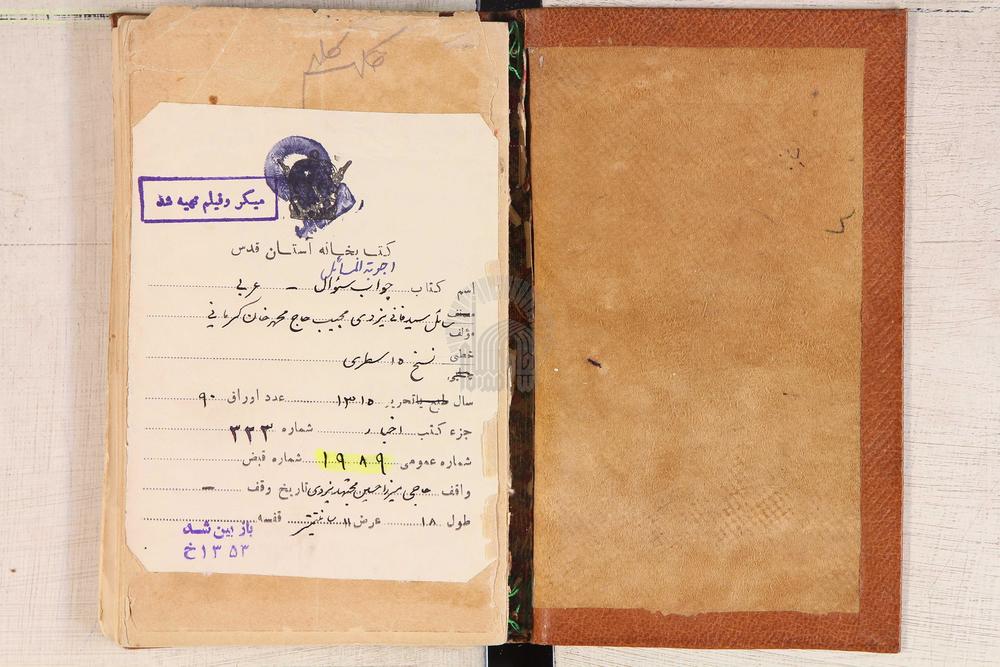 میکروفیلم تهیه شد
کتابخانه آستان قدس
اجوبة المسائل
اسم کتاب جواب سؤال - عربی
سید فانی یزدی مجیب حاج محمد خان کرمانی
مؤلف
خطی نسخ ۱۵ سطری
سال طبع یا تحریر ۱۳۱۵ عدد اوراق ۹۰
جزء کتب اخبار شماره ۳۲۳
شماره عمومی ۱۹۸۹ شماره قبض
واقف حاجی میرزا حسین مجتهد یزدی تاریخ وقف -
طول ۱۸ عرض ۱۱ سانتیمتر قفسه
بازبین شد
۱۳۵۳ خ